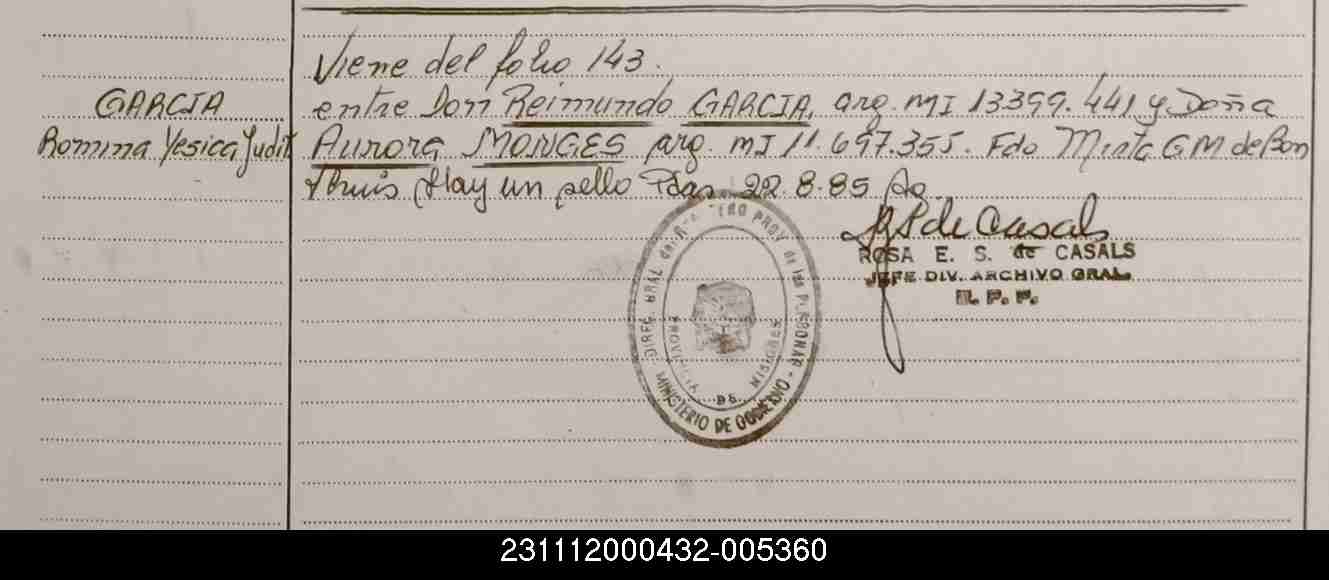 Viene del folio 143.
GARCIA
entre Don Reimundo GARCIA, arg. MI 13399.441 y Doña
Romina Yesica Judit
Aurora MONGES arg. MI 11.697.355. Fdo Mirta G M de Bon
Hay un sello Pdas 22.8.85
de Casals
ROSA E. S. de CASALS
JEFE DIV. ARCHIVO GRAL.
R. P. P.
DIREC. GRAL. del PROV. de las PERSONAS
PROVINCIA DE MISIONES
MINISTERIO DE GOBIERNO
231112000432-005360